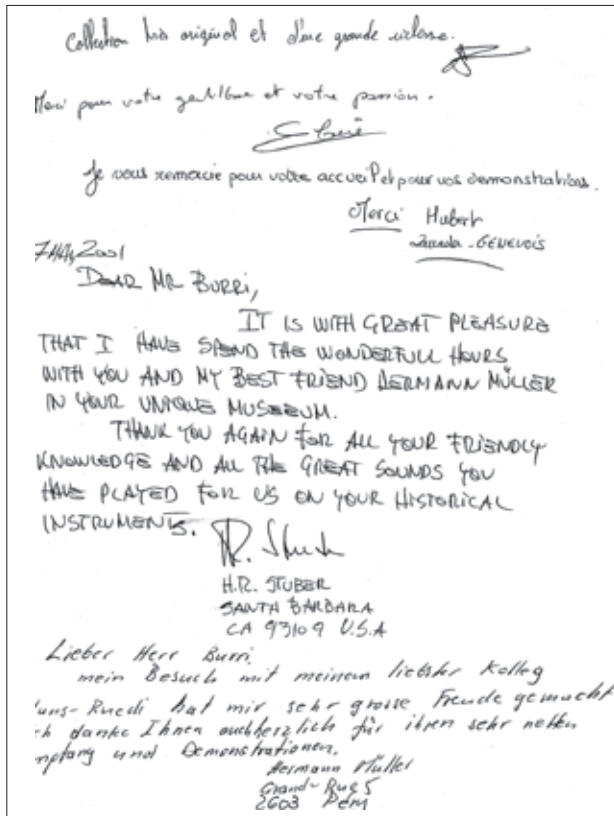 Collection très original et d'une grande richesse.
Merci pour votre gentillesse et votre passion.
Je vous remercie pour votre accueil et pour vos demonstrations.
Merci Hubert
GENEVOIS
2001
DEAR MR BURRI,
IT IS WITH GREAT PLEASURE
THAT I HAVE SPEND THE WONDERFULL HOURS
WITH YOU AND MY BEST FRIEND HERMANN MÜLLER
IN YOUR UNIQUE MUSEEUM.
THANK YOU AGAIN FOR ALL YOUR FRIENDLY
KNOWLEDGE AND ALL THE GREAT SOUNDS YOU
HAVE PLAYED FOR US ON YOUR HISTORICAL
INSTRUMENTS.
H.R. STUBER
SANTA BARBARA
CA 93109 U.S.A
Lieber Herr Burri,
mein Besuch mit meinem liebster Kolleg
Hans-Ruedi hat mir sehr grosse Freude gemacht
ich danke Ihnen auch herzlich für ihren sehr netten
mpfang und Demonstrationen.
Hermann Müller
Grand-Rue 5
2603 Péry